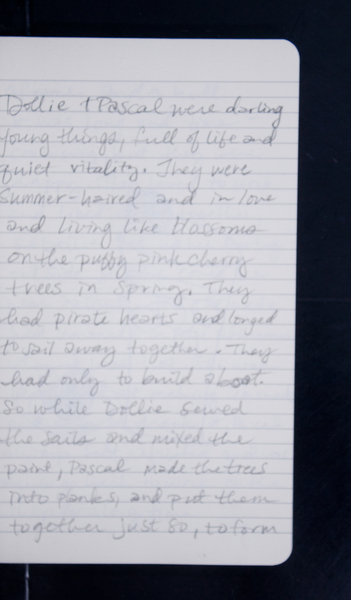 Dollie + Pascal were darling
young things, full of life and
quiet vitality. They were
summer-haired and in love
and living like blossoms
on the puffy pink cherry
trees in Spring. They
had pirate hearts and longed
to sail away together. They
had only to build a boat.
So while Dollie sewed
the sails and mixed the
paint, Pascal made the trees
into planks, and put them
together just so, to form